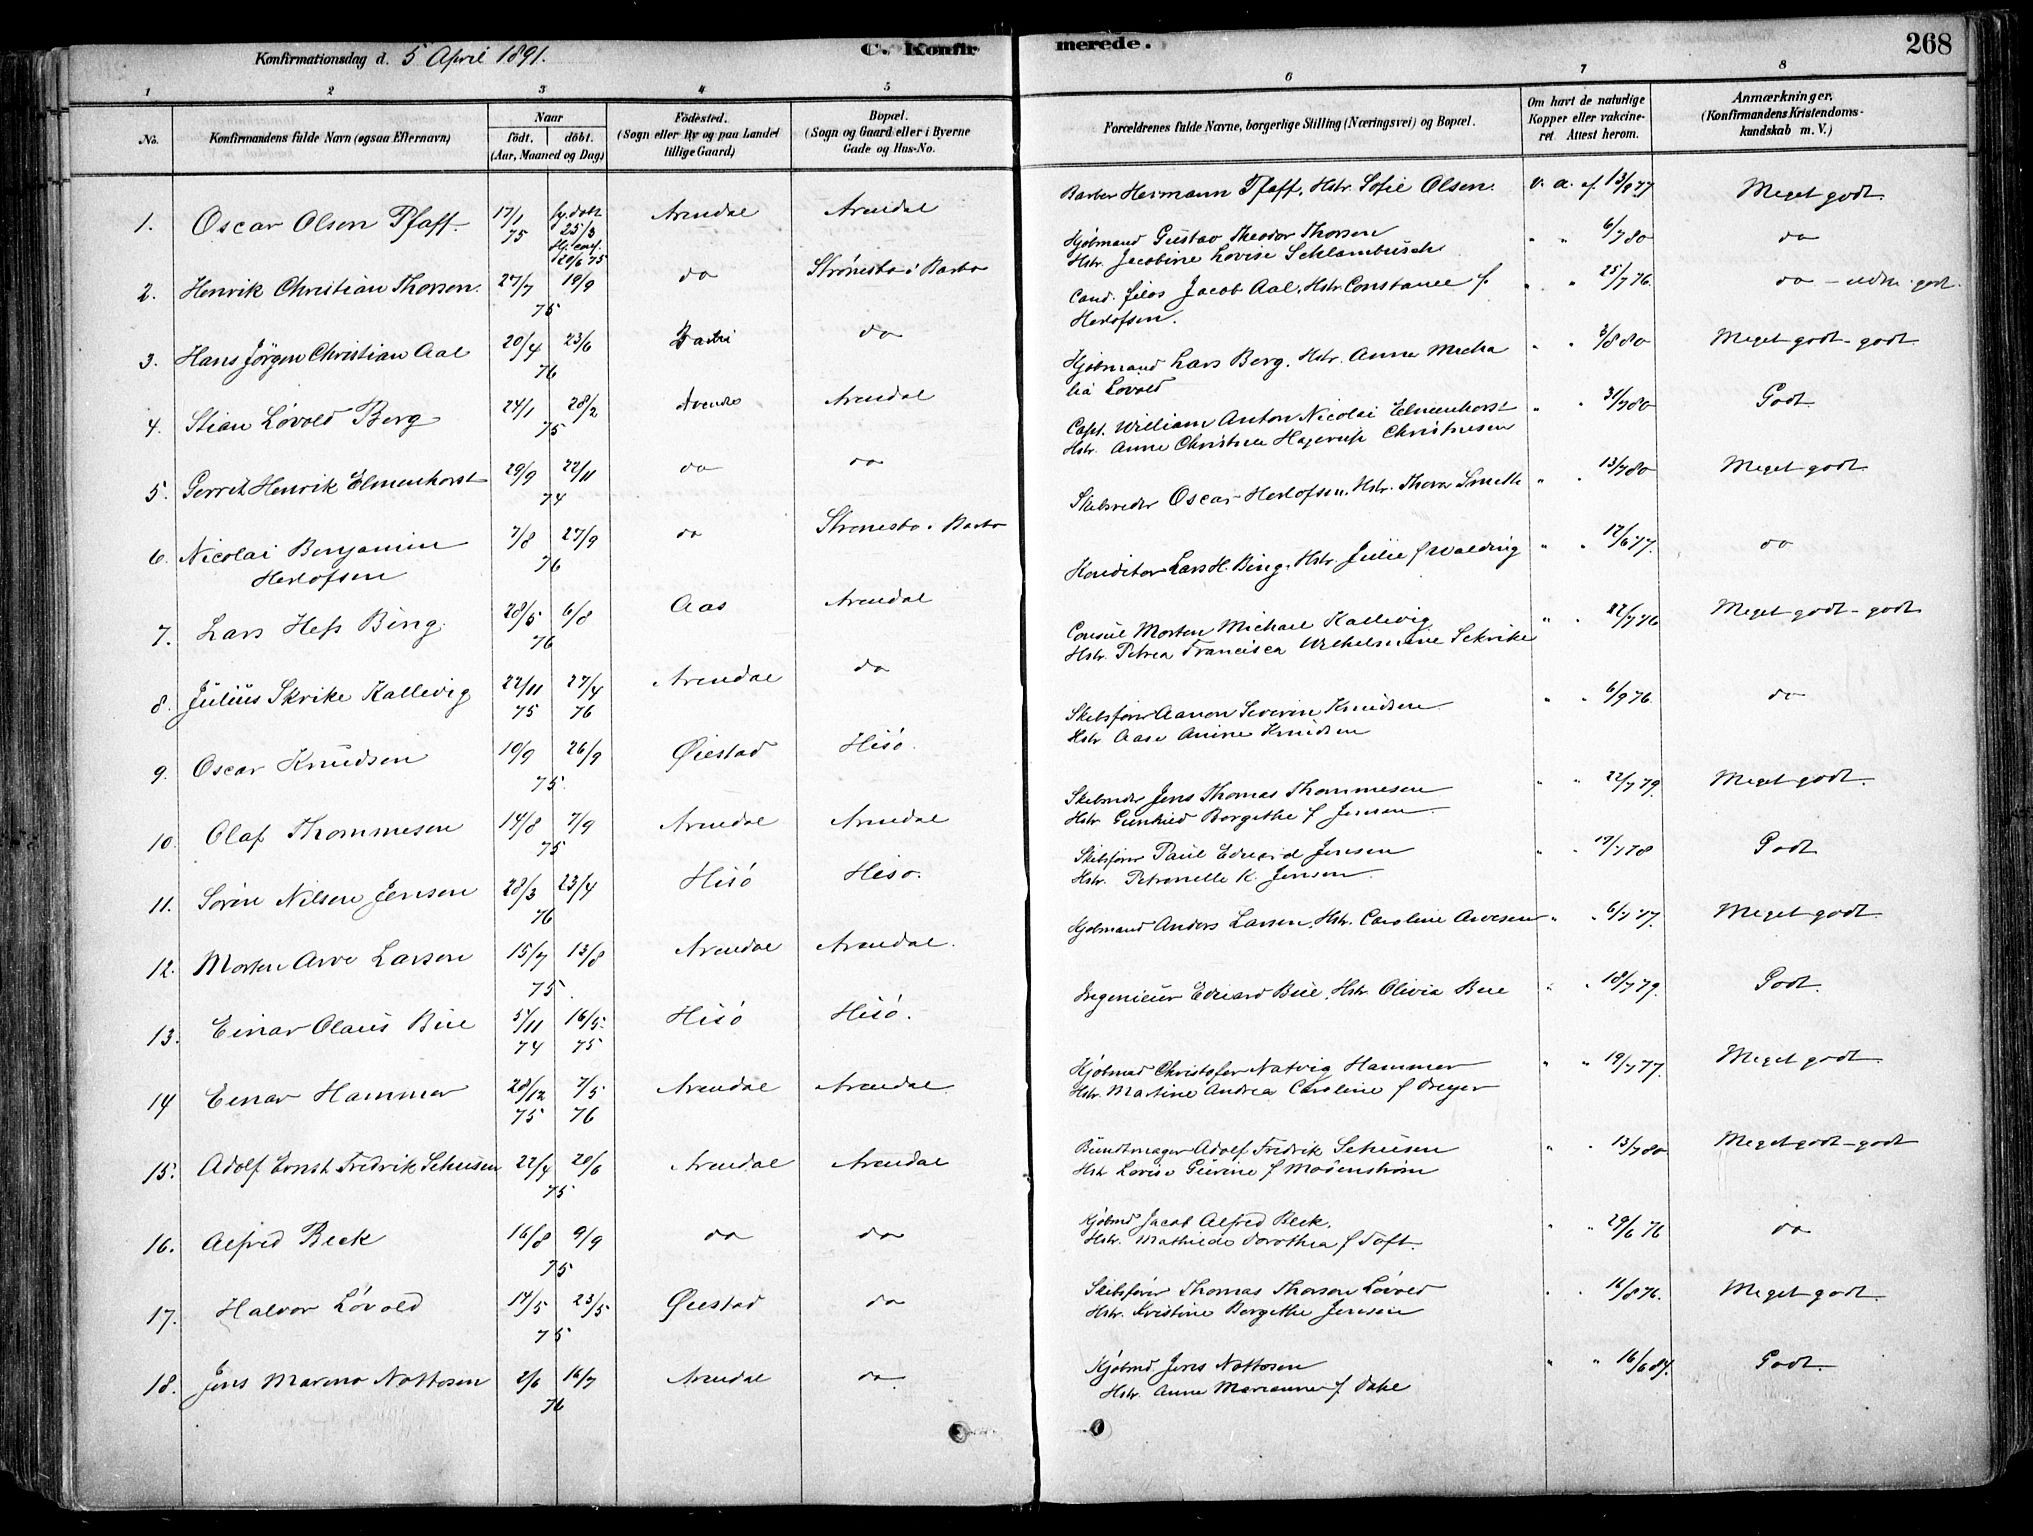 Konfirmationsdag d. 5 April 1891. C. Konfirmerede. 268
1 2 3 4 5 6 7 8
No. Konfirmandens fulde Navn (ogsaa Efternavn) Naar født, døbt. (Aar, Maaned og Dag) Födested. (Sogn eller By og paa Landet tillige Gaard) Bopæl. (Sogn og Gaard eller i Byerne Gade og Hus-No. Forældrenes fulde Navne, borgerlige Stilling (Næringsvei) og Bopæl. Om havt de naturlige Kopper eller vakcineret. Attest herom. Anmærkninger. (Konfirmandens Kristendomskundskab m. V.)
1. Oscar Olsen Pfaff 17/1 75 hj. døbt 25/3 20/6 75 Arendal Arendal Barber Hermann Pfaff, Hstr. Sofie Olsen. v. a. af 13/9 77 Meget godt
2. Henrik Christian Thorsen. 27/7 19/9 75 do Strømsbo i Barbo Kjøbmand Gustav Theodor Thorsen
Hstr. Jacobine Lovise Schlambusch " " 6/7 80 do
3. Hans Jörgen Christian Aal 20/4 23/6 76 Barbo do Cand. filos Jacob Aal, Hstr. Constance f.
Herlofsen. " " 25/7 76. do - udm. godt.
4. Stian Løvold Berg 24/1 28/2 75 Arendal Arendal Kjøbmand Lars Berg. Hstr. Anne Micha
lia Lovold " " 3/8 80 Meget godt - godt
5. Gerret Henrik Elmenhorst 29/9 22/11 74 do do Capt. William Anton Nicolai Elmenhorst
Hstr. Anne Christine Hagerup Christensen " " 31/7 80 Godt
6. Nicolai Benjamin
Herlofsen 7/8 27/9 76 do Strømsbo i Barbo Skibsreder Oscar Herlofsen, Hstr. Thora Smith " " 13/7 80 Meget godt
7. Lars Hess Bing. 28/5 6/8 76 Aas Arendal Konditor Lars H. Bing. Hstr. Julie f Walding " " 12/6 77. do
8. Julius Skrike Kallevig 22/11 75 27/4 76 Arendal do Consul Morten Michael Kallevig
Hstr. Petrea Francisca Wilhelmine Schrike " " 22/7 76 Meget godt - godt
9. Oscar Knudsen 10/9 26/9 75. Øiestad Hisø. Skibsfører Aanon Severin Knudsen
Hstr. Aase Anine Knudsen " " 6/9 76. do
10. Olaf Thommesen 14/8 7/9 75 Arendal Arendal Skibsreder Jens Thomas Thommesen
Hstr. Gunhild Borgethe f Jensen. " " 22/7 79. Meget godt.
11. Søren Nilsen Jensen 28/3 23/4 76 Hisö Hisö. Skibsfører Paul Edvard Jensen
Hstr. Petronelle K. Jensen. " " 17/7 78 Godt
12. Morten Arve Larsen 15/7 13/8 75. Arendal Arendal. Kjøbmand Anders Larsen. Hstr. Caroline Arvesen " " 6/7 77. Meget godt
13. Einar Olaus Bue 5/11 74 16/5 75 Hisö Hisö. Ingenieur Edvard Bue, Hstr. Olivia Bue " " 18/7 79. Godt.
14 Einar Hammer 28/12 75 7/5 76 Arendal Arendal Kjøbmad Christofer Natvig Hammer
Hstr. Martine Andrea Caroline f Dreyer " " 19/7 77. Meget godt
15. Adolf Ernst Fredrik Schusen 22/4 20/6 75 Arendal Arendal Bundtmager Adolf Fredrik Schusen
Hstr Lovise Gurine f Mosenstrøm " " 13/7 80 Meget godt - godt
16. Alfred Beck 16/8 9/9 75 do do Kjøbmd Jacob Alfred Beck.
Hstr. Mathilde Dorothea f Toft. " " 29/6 76 do
17. Halvor Løvold 14/5 23/5 75 Øiestad do Skibsfører Thomas Thorsen Løvold
Hstr. Kristine Borgethe Jensen " " 16/8 76. Meget godt.
18. Jens Mareno Nottosen 2/6 16/7 76 Arendal do Kjøbmd. Jens Nottosen
Hstr. Anne Marianne f Dahl " " 16/6 84. Godt.